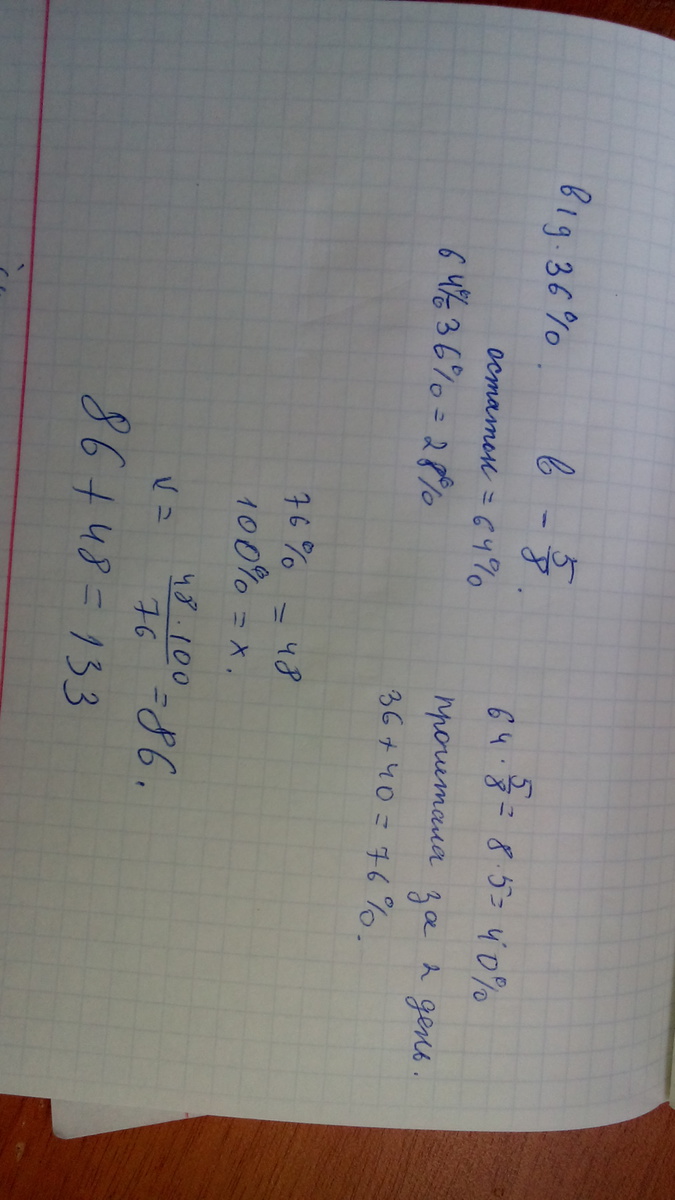 в 1 д. 36%. в - 5/8.
остаток = 64%
64% 36% = 28%
64 · 5/8 = 8 · 5 = 40%
прочитала за 2 день.
36 + 40 = 76%.
76% = 48
100% = x.
= 48 · 100 / 76 = 86.
86 + 48 = 133